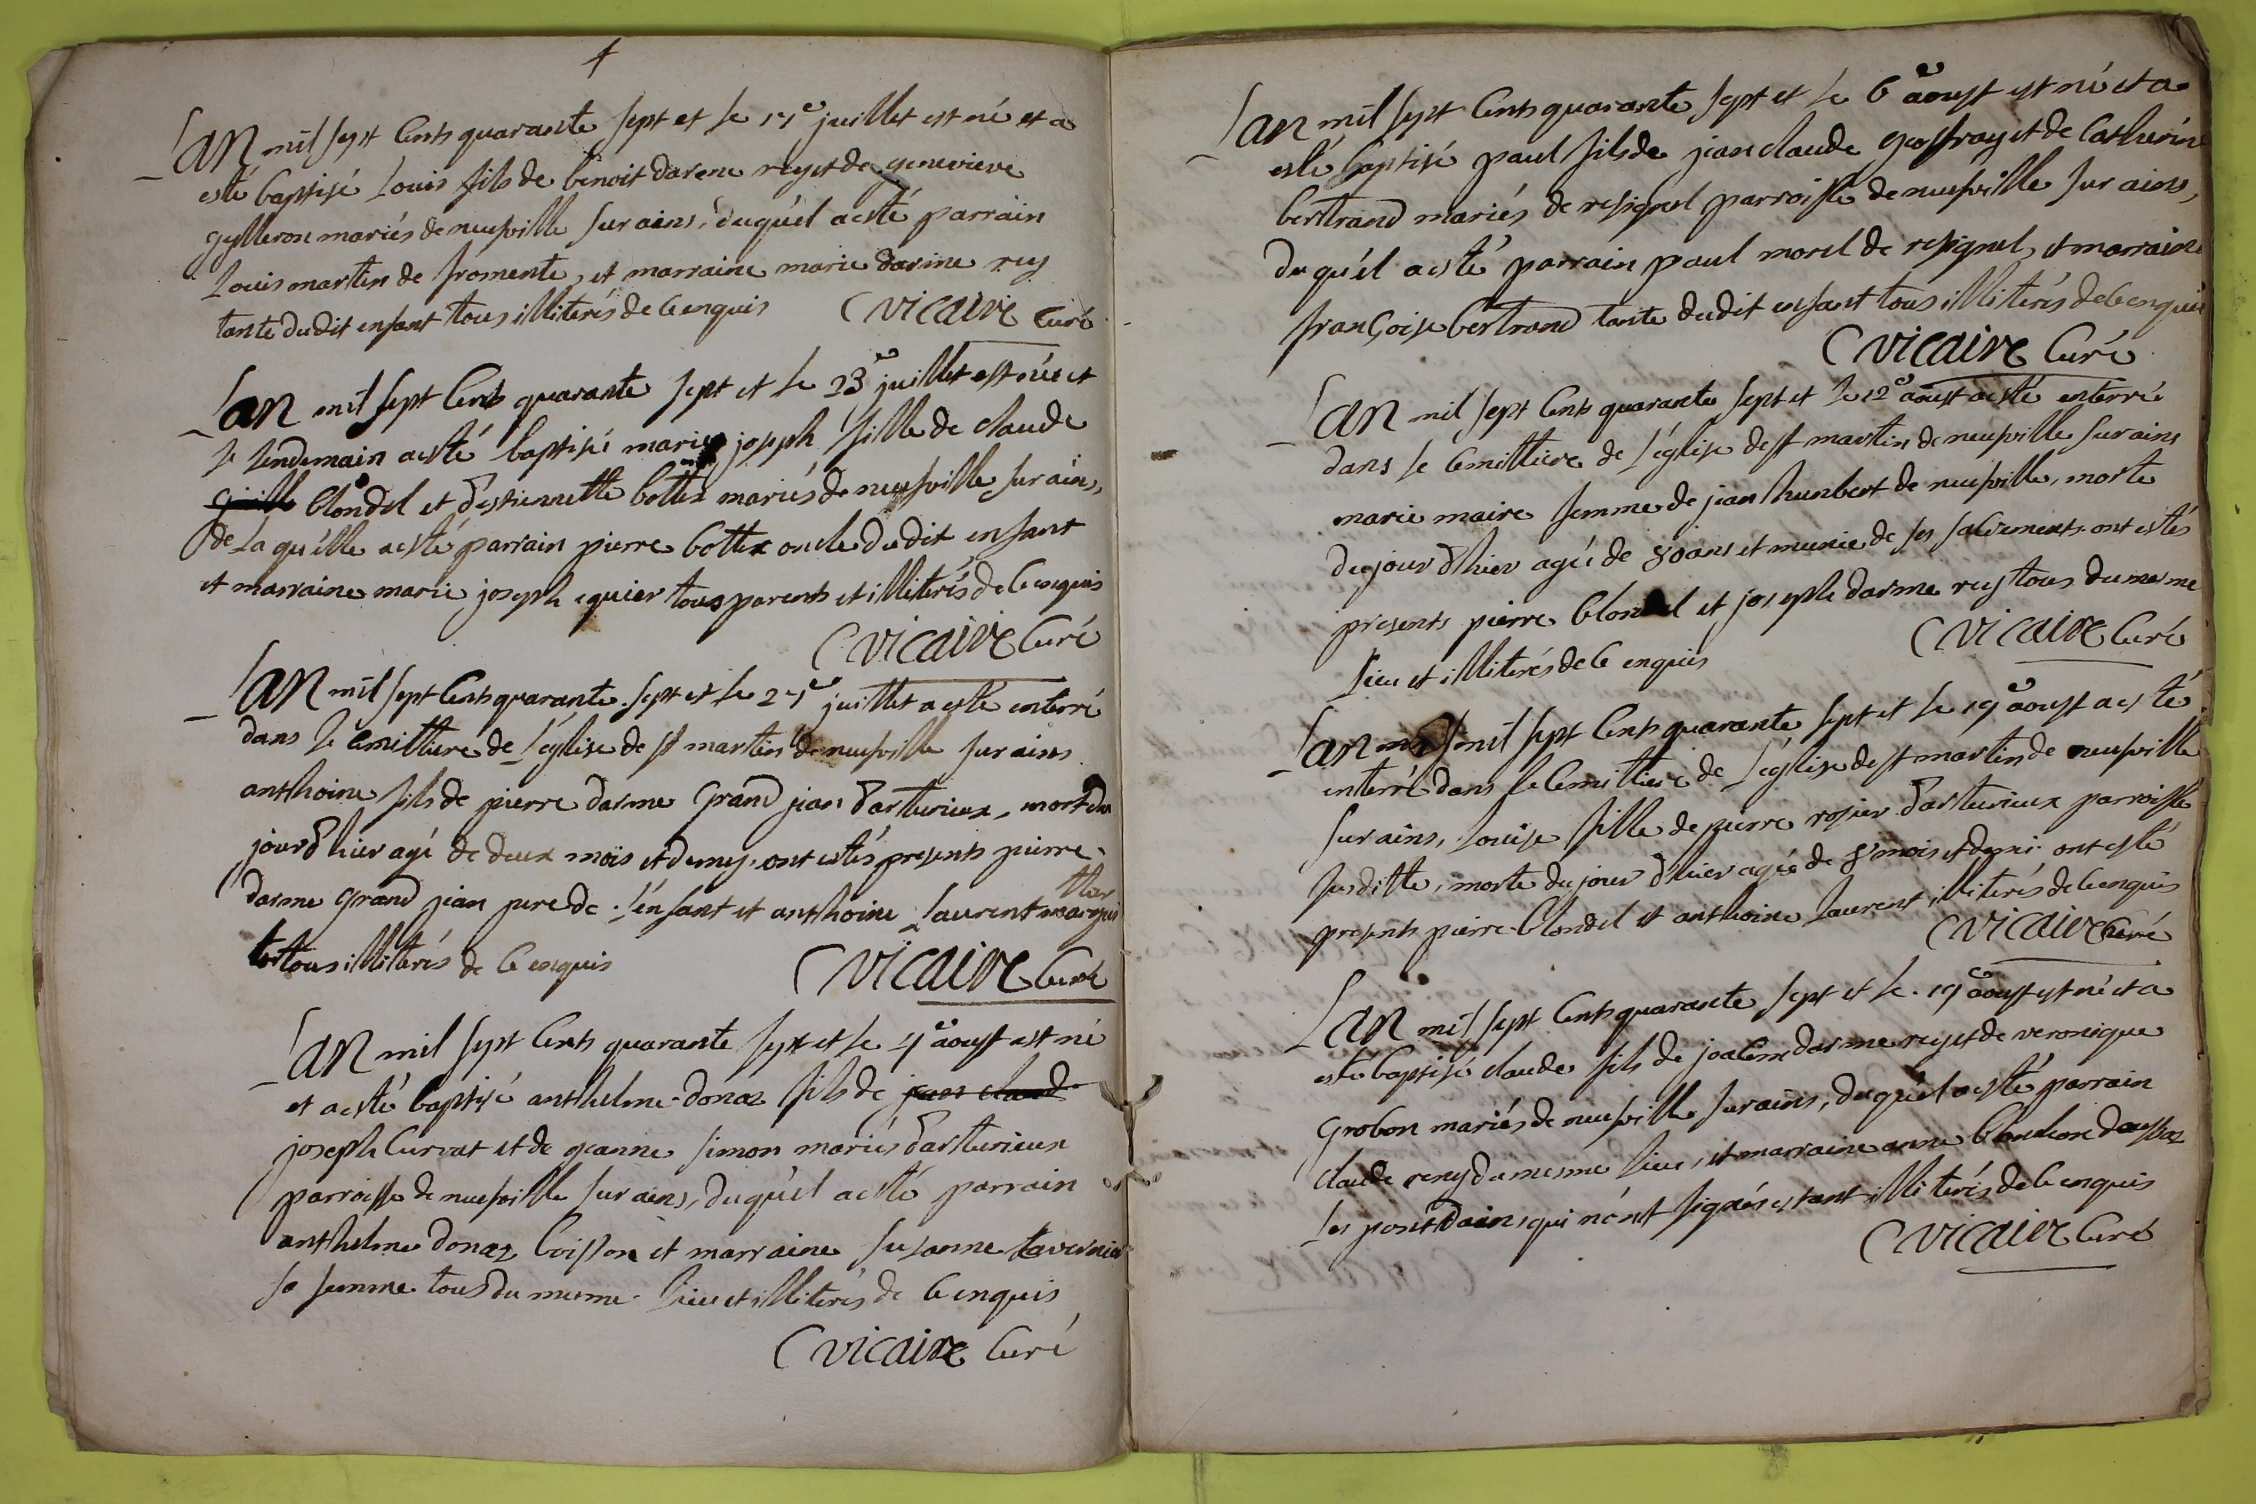 4
Lan mil sept cents quarante sept et le 17e juillet est né et a
esté baptisé Louis fils de benoit darme rey et de genevieve
gylleron mariés de neufville sur ains, duquél a esté parrain
Louis martin de fromente, et marraine marie darme rey
tante dudit enfant tous illiterés de ce enquis Vicaire Curé
Lan mil sept cents quarante sept et le 23e juillet est née et
le lendemain a esté baptisé marie joseph fille de claude
blondel et d'estiennette bottex mariés de neufville sur ains,
de la quélle a esté parrain pierre bottex oncle dudit enfant
et marraine marie joseph equier tous parents et illiterés de ce enquis
Vicaire Curé
Lan mil sept cents quarante sept et le 27e juillet a esté enterré
dans le cemittiere de l'église de st martin de neufville sur ains
anthoine fils de pierre darme grand jean d'arturieux, mort du
jour d'hier agé de deux mois et demy, ont estés presents pierre
darme grand jean pere de l'enfant et anthoine laurent
tous illiterés de ce enquis Vicaire Curé
Lan mil sept cents quarante sept et le 4e aoust est né
et a esté baptisé anthelme donaz fils de jean claude
joseph Curvat et de jeanne simon mariés d'arturieux
parroisse de neufville sur ains, duquél a esté parrain
anthelme donaz Coisson et marraine susanne tavernier
sa femme tous du mesme lieu et illiterés de ce enquis
Vicaire Curé
Lan mil sept cents quarante sept et le 6e aoust est né et a
esté baptisé paul fils de jean claude geoffray et de Catherine
bertrand mariés de resignel parroisse de neufville sur ains,
duquél a esté parrain paul morel de resignel, et marraine
françoise bertrand tante dudit enfant tous illiterés de ce enquis
Vicaire Curé
Lan mil sept cents quarante sept et le 12e aoust a esté enterré
dans le cemittiere de l'église de st martin de neufville sur ains
marie maire femme de jean humbert de neufville, morte
du jour d'hier agée de 80 ans et munie de ses sacrements. ont estés
presents pierre blondel et joseph darme rey tous du mesme
lieu et illiterés de ce enquis Vicaire Curé
Lan mil sept cents quarante sept et le 19e aoust a esté
enterré dans le cemittiere de l'église de st martin de neufville
sur ains, louise fille de pierre rosier d'arturieux parroisse
susditte, morte du jour d'hier agée de 8 mois et demi. ont esté
presents pierre blondel et anthoine laurent illiterés de ce enquis
Vicaire Curé
Lan mil sept cents quarante sept et le 19e aoust est né et a
esté baptisé claude fils de joachim darme rey et de veronique
grobon mariés de neufville sur ains, duquél a esté parrain
claude reney du mesme lieu, et marraine anne blanchon
les pont dain, qui n'ont signés estant illiterés de ce enquis
Vicaire Curé